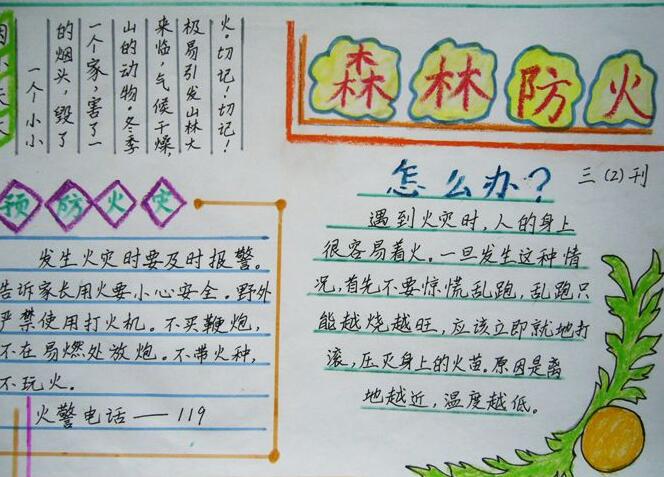 森林防火
三(2)刊
一个小小
的烟头,毁了
一个家,害了一
山的动物。冬季
来临,气候干燥,
极易引发山林大
火。切记!切记!
预防火灾
发生火灾时要及时报警。
告诉家长用火要小心安全。野外
严禁使用打火机。不买鞭炮,
不在易燃处放炮。不带火种,
不玩火。
火警电话——119
怎么办?
遇到火灾时,人的身上
很容易着火。一旦发生这种情
况,首先不要惊慌乱跑,乱跑只
能越烧越旺,应该立即就地打
滚,压灭身上的火苗。原因是离
地越近,温度越低。